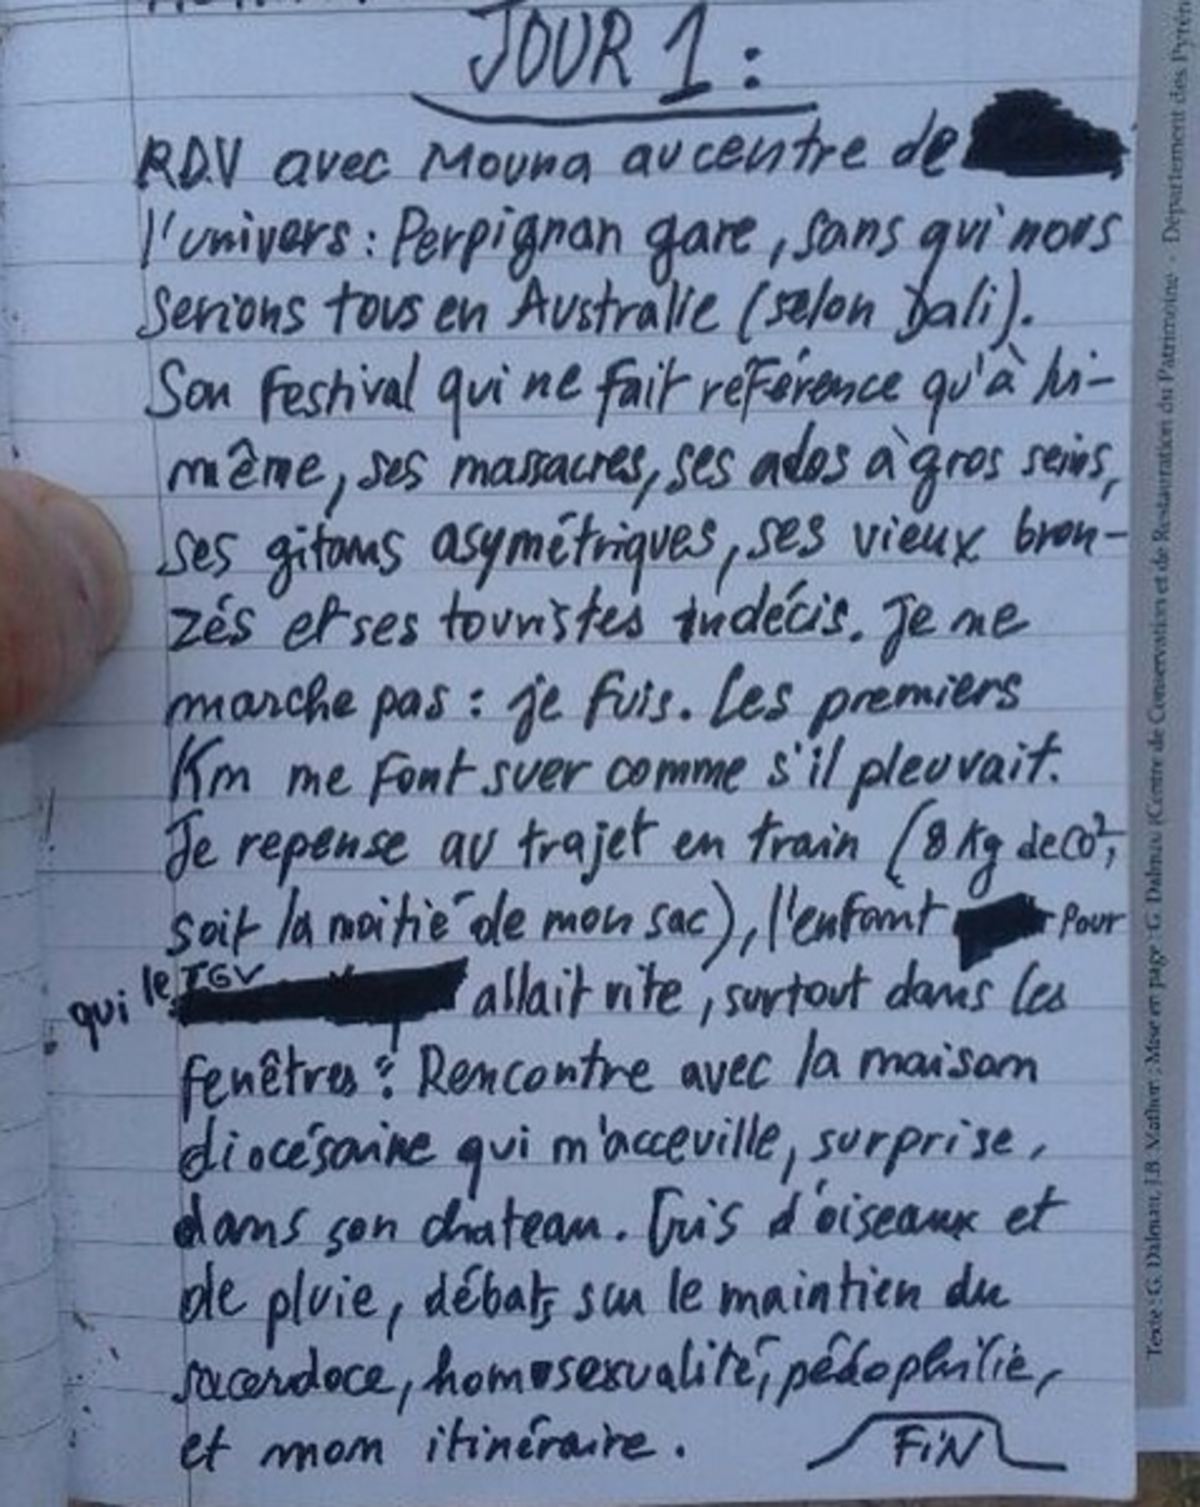 JOUR 1 :
RDV avec Mouna au centre de
l'univers : Perpignan gare, sans qui nous
serions tous en Australie (selon Dali).
Son Festival qui ne fait référence qu'à lui-
même, ses massacres, ses ados à gros seins,
ses gitans asymétriques, ses vieux bron-
zés et ses touristes indécis. Je ne
marche pas : je fuis. Les premiers
Km me font suer comme s'il pleuvait.
Je repense au trajet en train (8 Kg de CO²,
soit la moitié de mon sac), l'enfant pour
qui le TGV allait vite, surtout dans les
fenêtres. Rencontre avec la maison
diocésaine qui m'acceuille, surprise,
dans son chateau. Cris d'oiseaux et
de pluie, débats sur le maintien du
sacerdoce, homosexualité, pédophilie,
et mon itinéraire.
FiN
Texte : G. Dalmau, J.B. Mathon ; Mise en page : G. Dalmau (Centre de Conservation et de Restauration du Patrimoine - Département des Pyrén